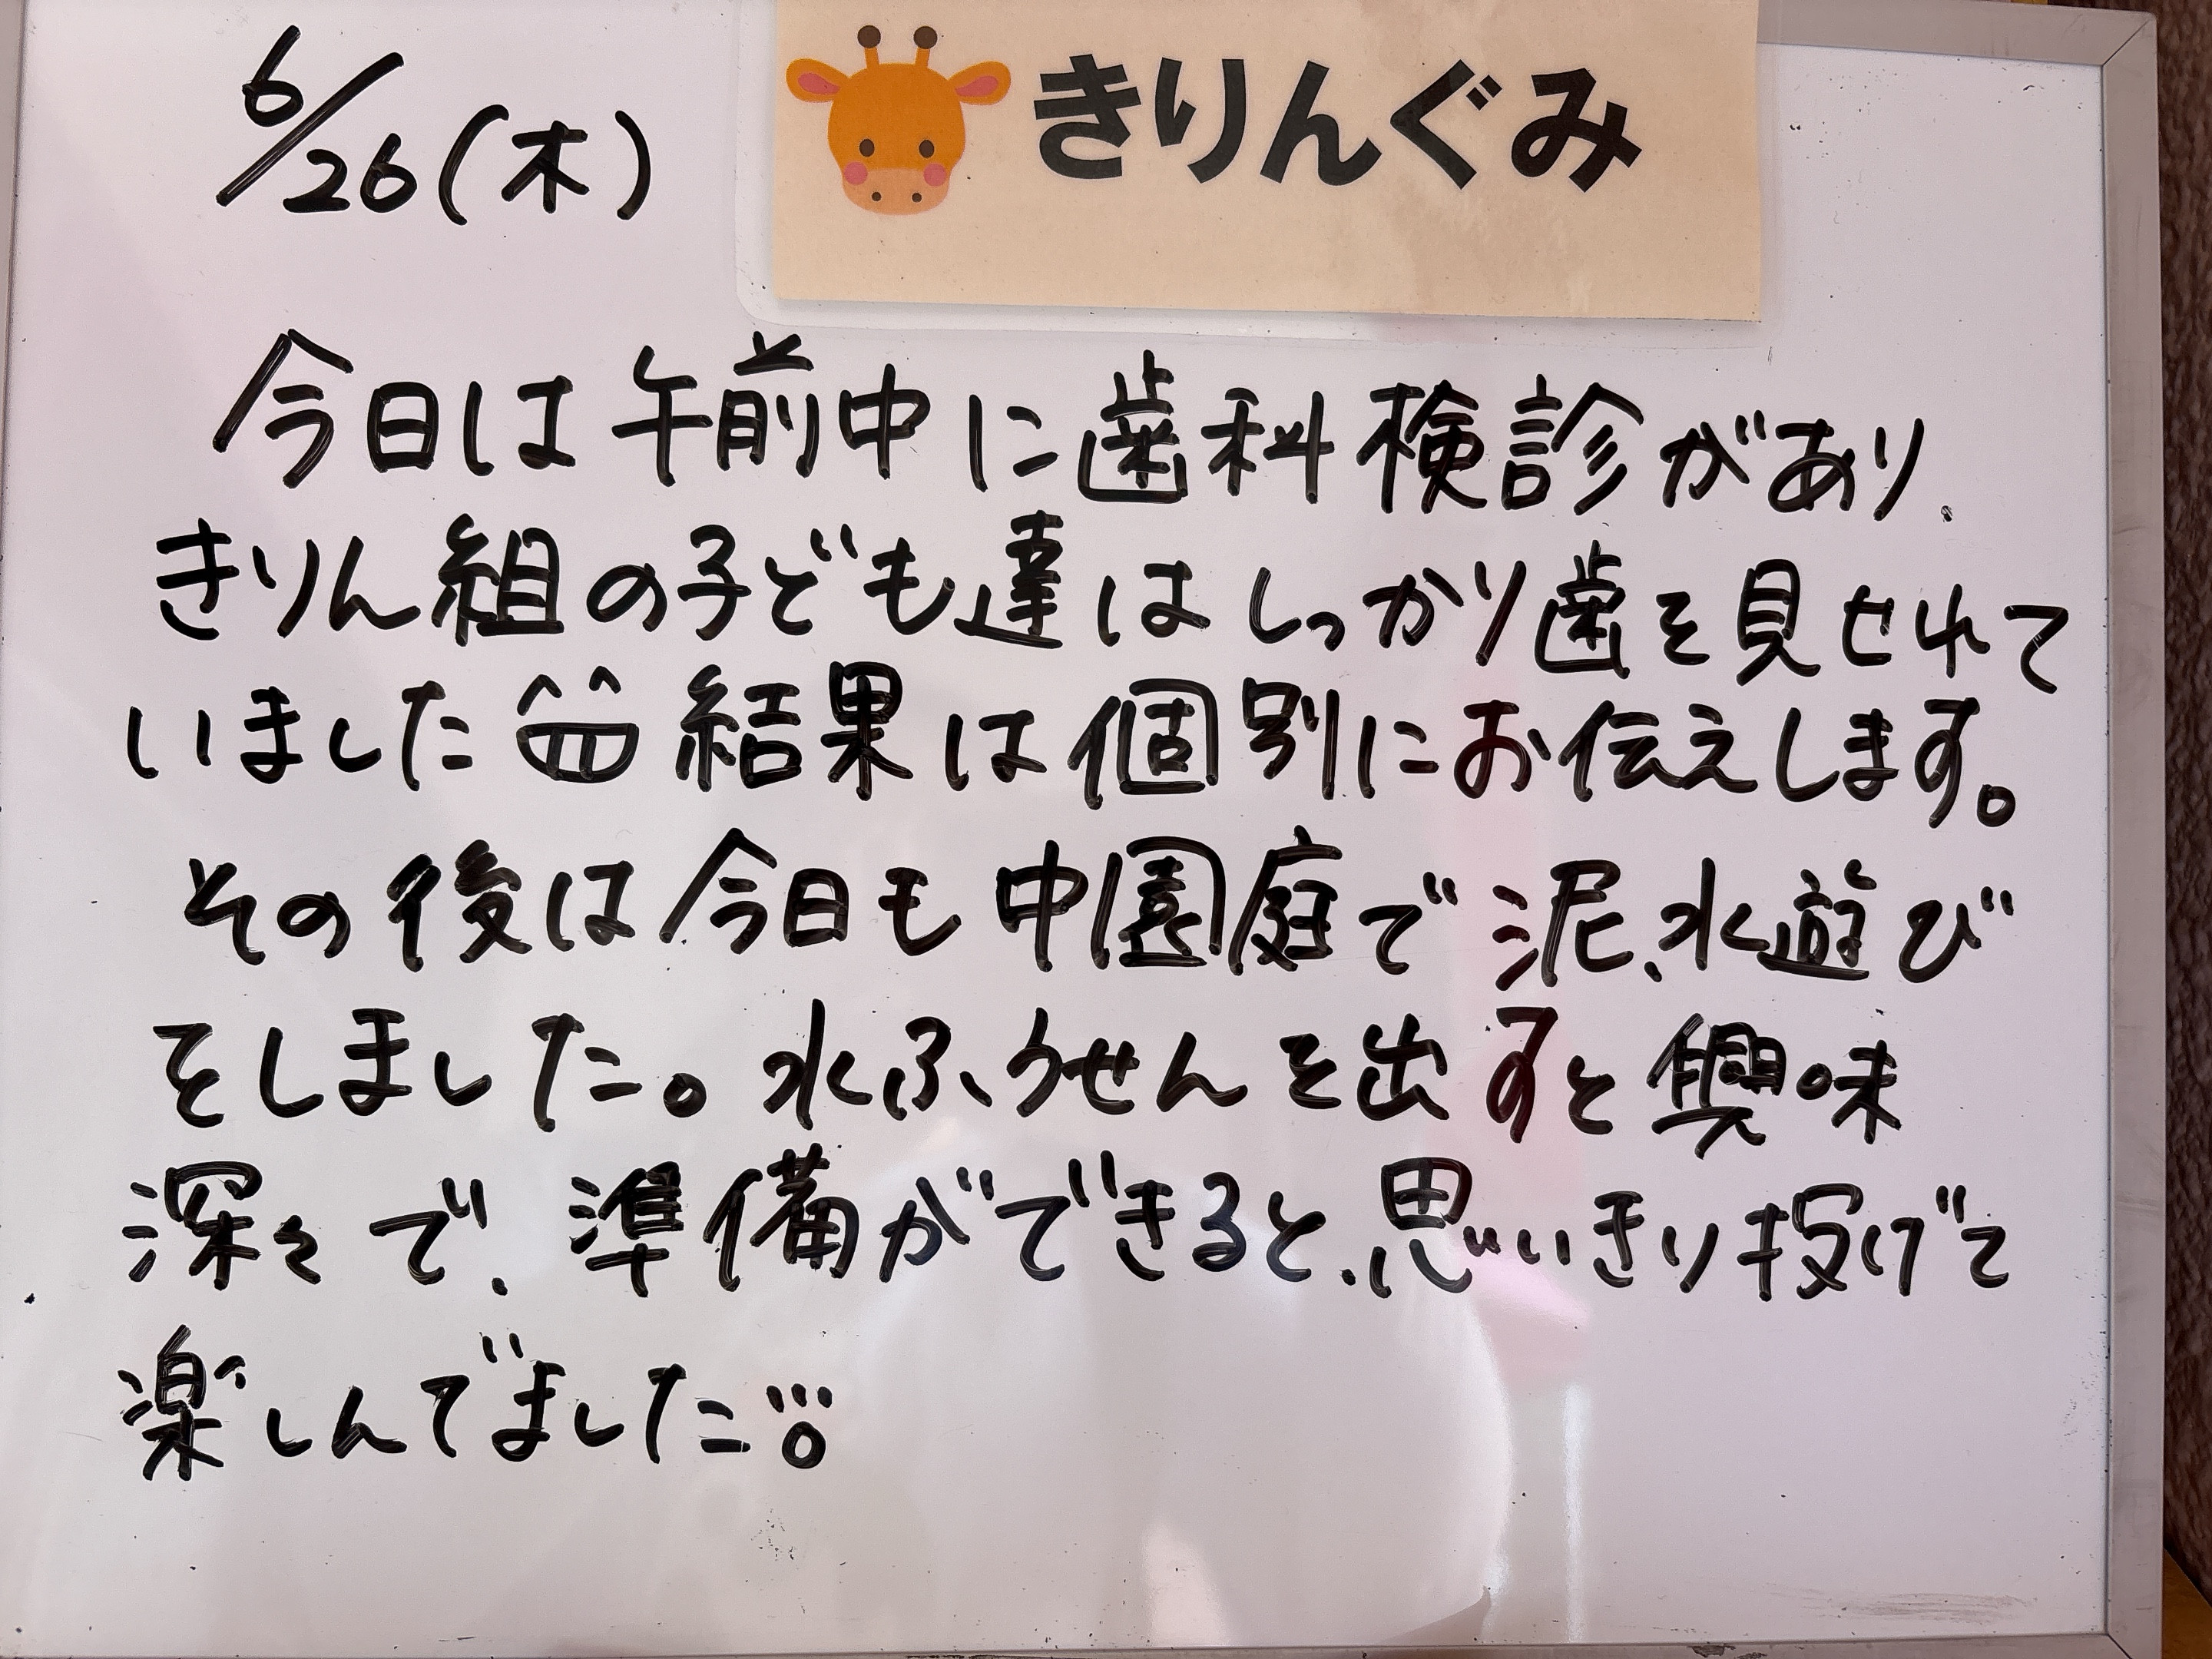 6/26(木)
きりんぐみ
今日は午前中に歯科検診があり、
きりん組の子ども達はしっかり歯を見せれて
いました 結果は個別にお伝えします。
その後は今日も中園庭で泥、水遊び
をしました。水ふうせんを出すと興味
深々で、準備ができると、思いきり投げて
楽しんでました